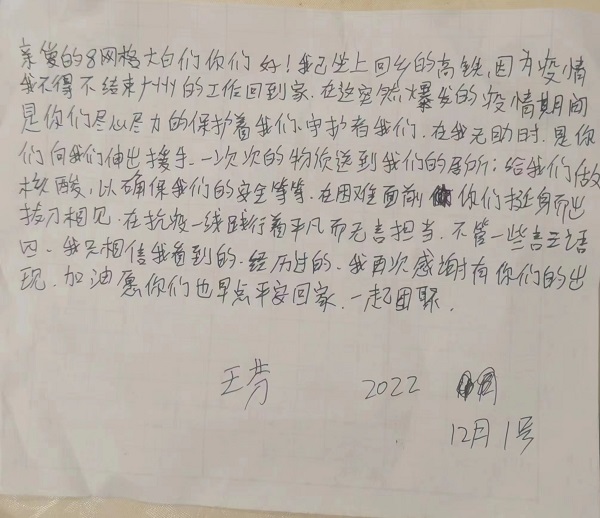 亲爱的8网格大白们你们好！我已坐上回乡的高铁，因为疫情
我不得不结束广州的工作回到家．在这突然爆发的疫情期间
是你们尽心尽力的保护着我们．守护者我们．在我无助时．是你
们向我们伸出援手．一次次的物质送到我们的居所；给我们做
核酸，以确保我们的安全等等．在困难面前 你们挺身而出
拔刀相见．在抗疫一线践行着平凡而无言担当．不管一些言三语
四．我只相信我看到的．经历过的．我再次感谢有你们的出
现．加油愿你们也早点平安回家．一起团聚．
王芳 2022
12月1号